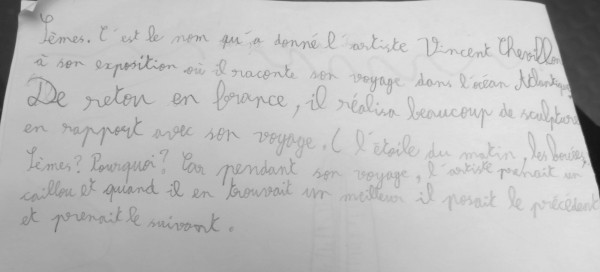 Sèmes. C'est le nom qu'a donné l'artiste Vincent Chevillon
à son exposition où il raconte son voyage dans l'océan Atlantique
De retou en france, il réalisa beaucoup de sculpture
en rapport avec son voyage. ( l'étoile du matin, les bouées,
Sèmes? Pourquoi? Car pendant son voyage, l'artiste prenait un
caillou et quand il en trouvait un meilleur il posait le précédent
et prenait le suivant.